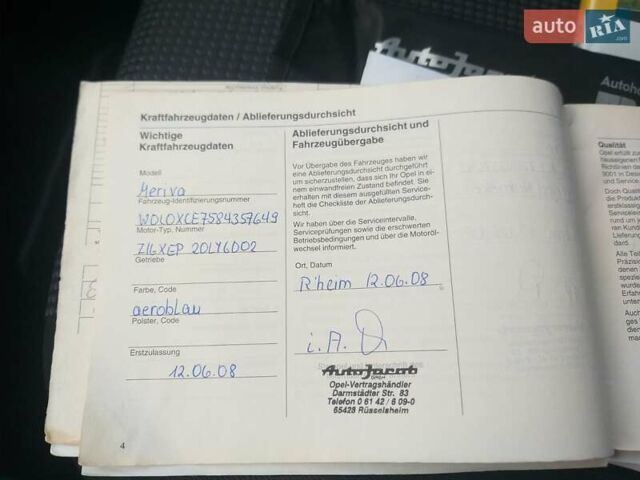 auto RIA .com
AutoJacob
Autoho
Kraftfahrzeugdaten / Ablieferungsdurchsicht
Wichtige
Kraftfahrzeugdaten
Modell
Meriva
Fahrzeug-Identifizierungsnummer
W0L0XCE7584357649
Motor-Typ, Nummer
Z16XEP 20LY6002
Getriebe
Farbe, Code
aeroblau
Polster, Code
Erstzulassung
12.06.08
4
Ablieferungsdurchsicht und
Fahrzeugübergabe
Vor Übergabe des Fahrzeuges haben wir
eine Ablieferungsdurchsicht durchgeführt
um sicherzustellen, dass sich Ihr Opel in ei-
nem einwandfreien Zustand befindet. Sie
erhalten mit diesem ausgefüllten Service-
heft die Checkliste der Ablieferungsdurch-
sicht.
Wir haben über die Serviceintervalle,
Serviceprüfungen sowie die erschwerten
Betriebsbedingungen und über die Motoröl-
wechsel informiert.
Ort, Datum
R'heim 12.06.08
i.A.
AutoJacob
GmbH
Opel-Vertragshändler
Darmstädter Str. 83
Telefon 0 61 42 / 6 09-0
65428 Rüsselsheim
Qualität
Opel erfüllt zur
Neueseigenen
Richtlinien de
9001 in Desi
und Service.
Doch Qualit
die Produkte
erstklassig
Servicelei
ren Kund
Lieferung
dardt.
Alle Teil
Präzisio
denen
speziel
wurde
Erfah
unter
Auc
ges
ma